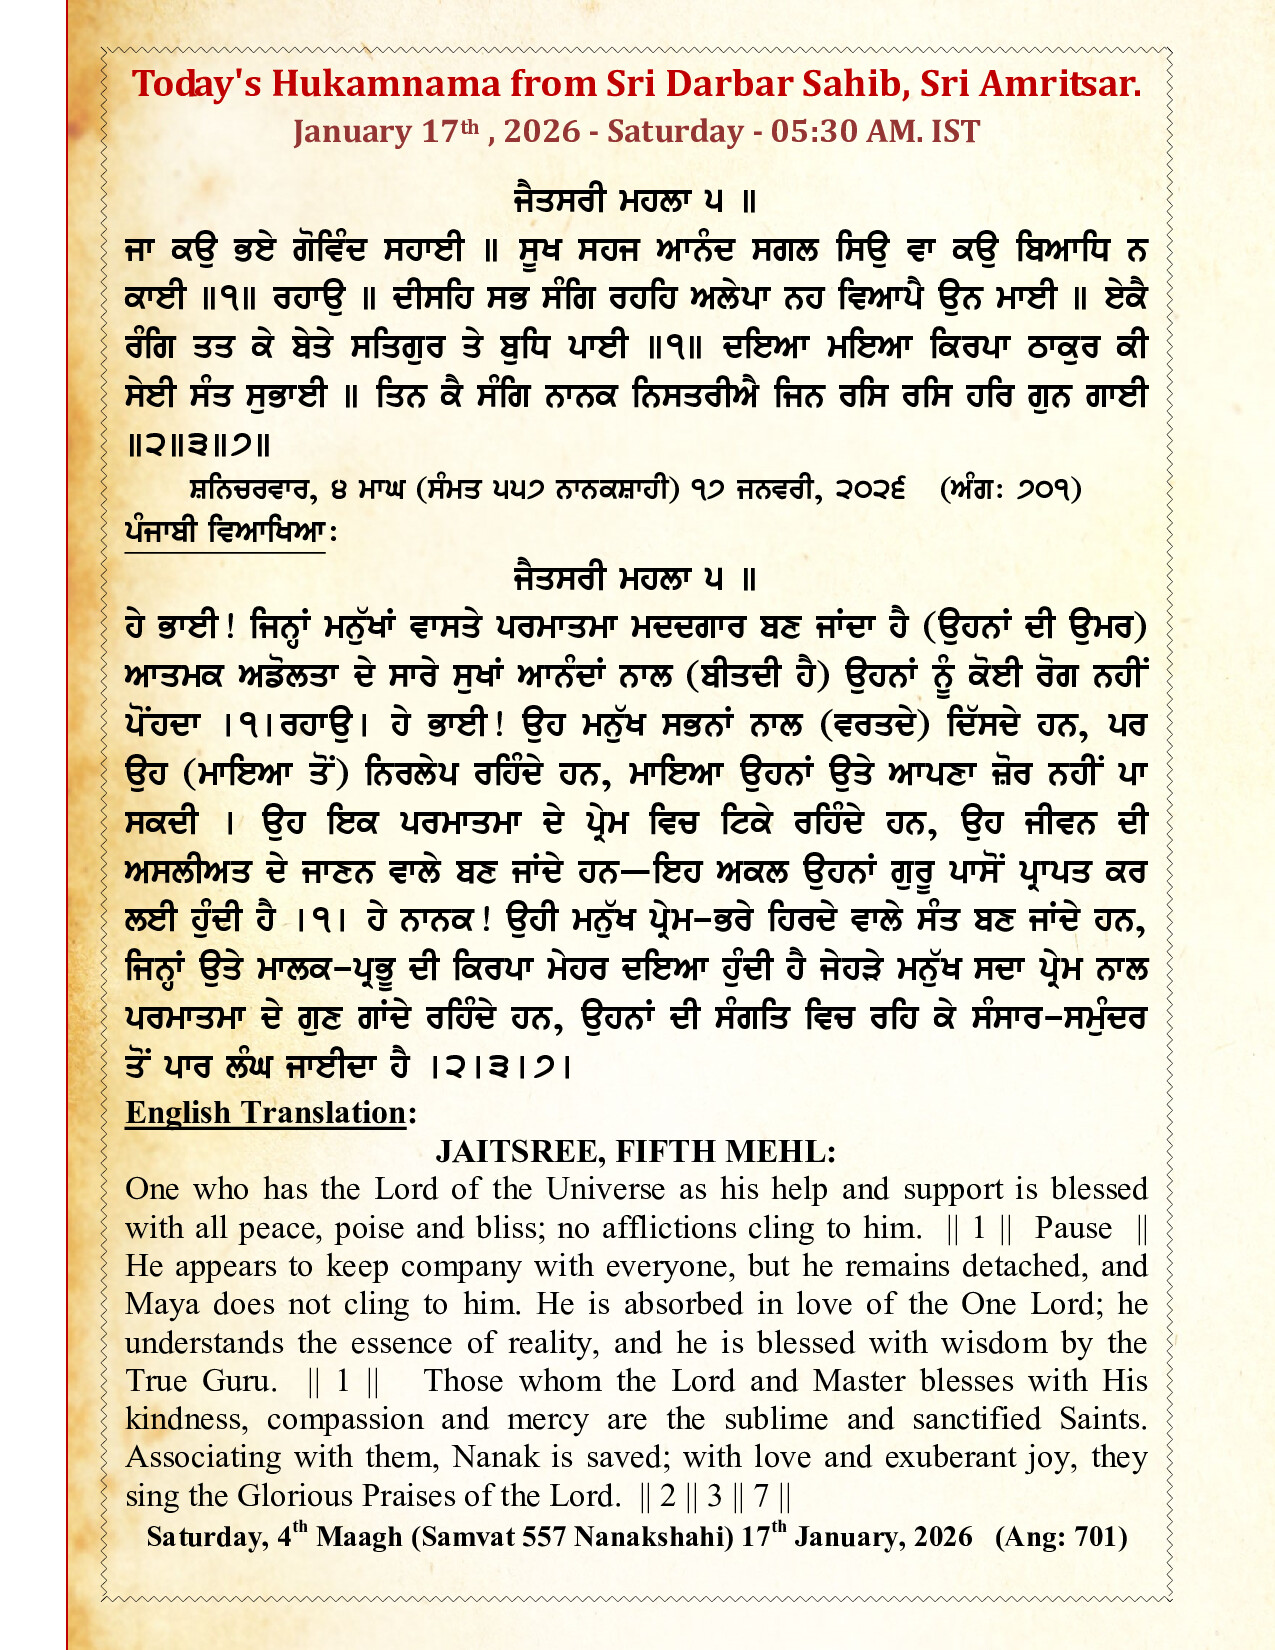 Today's Hukamnama from Sri Darbar Sahib, Sri Amritsar.
January 17th , 2026 - Saturday - 05:30 AM. IST
ਜੈਤਸਰੀ ਮਹਲਾ ੫ ॥
ਜਾ ਕਉ ਭਏ ਗੋਵਿੰਦ ਸਹਾਈ ॥ ਸੂਖ ਸਹਜ ਆਨੰਦ ਸਗਲ ਸਿਉ ਵਾ ਕਉ ਬਿਆਧਿ ਨ
ਕਾਈ ॥੧॥ ਰਹਾਉ ॥ ਦੀਸਹਿ ਸਭ ਸੰਗਿ ਰਹਹਿ ਅਲੇਪਾ ਨਹ ਵਿਆਪੈ ਉਨ ਮਾਈ ॥ ਏਕੈ
ਰੰਗਿ ਤਤ ਕੇ ਬੇਤੇ ਸਤਿਗੁਰ ਤੇ ਬੁਧਿ ਪਾਈ ॥੧॥ ਦਇਆ ਮਇਆ ਕਿਰਪਾ ਠਾਕੁਰ ਕੀ
ਸੇਈ ਸੰਤ ਸੁਭਾਈ ॥ ਤਿਨ ਕੈ ਸੰਗਿ ਨਾਨਕ ਨਿਸਤਰੀਐ ਜਿਨ ਰਸਿ ਰਸਿ ਹਰਿ ਗੁਨ ਗਾਈ
॥੨॥੩॥੭॥
ਸ਼ਨਿਚਰਵਾਰ, ੪ ਮਾਘ (ਸੰਮਤ ੫੫੭ ਨਾਨਕਸ਼ਾਹੀ) ੧੭ ਜਨਵਰੀ, ੨੦੨੬ (ਅੰਗ: ੭੦੧)
ਪੰਜਾਬੀ ਵਿਆਖਿਆ:
ਜੈਤਸਰੀ ਮਹਲਾ ੫ ॥
ਹੇ ਭਾਈ! ਜਿਨ੍ਹਾਂ ਮਨੁੱਖਾਂ ਵਾਸਤੇ ਪਰਮਾਤਮਾ ਮਦਦਗਾਰ ਬਣ ਜਾਂਦਾ ਹੈ (ਉਹਨਾਂ ਦੀ ਉਮਰ)
ਆਤਮਕ ਅਡੋਲਤਾ ਦੇ ਸਾਰੇ ਸੁਖਾਂ ਆਨੰਦਾਂ ਨਾਲ (ਬੀਤਦੀ ਹੈ) ਉਹਨਾਂ ਨੂੰ ਕੋਈ ਰੋਗ ਨਹੀਂ
ਪੋਂਹਦਾ ।੧।ਰਹਾਉ। ਹੇ ਭਾਈ! ਉਹ ਮਨੁੱਖ ਸਭਨਾਂ ਨਾਲ (ਵਰਤਦੇ) ਦਿੱਸਦੇ ਹਨ, ਪਰ
ਉਹ (ਮਾਇਆ ਤੋਂ) ਨਿਰਲੇਪ ਰਹਿੰਦੇ ਹਨ, ਮਾਇਆ ਉਹਨਾਂ ਉਤੇ ਆਪਣਾ ਜ਼ੋਰ ਨਹੀਂ ਪਾ
ਸਕਦੀ । ਉਹ ਇਕ ਪਰਮਾਤਮਾ ਦੇ ਪ੍ਰੇਮ ਵਿਚ ਟਿਕੇ ਰਹਿੰਦੇ ਹਨ, ਉਹ ਜੀਵਨ ਦੀ
ਅਸਲੀਅਤ ਦੇ ਜਾਣਨ ਵਾਲੇ ਬਣ ਜਾਂਦੇ ਹਨ—ਇਹ ਅਕਲ ਉਹਨਾਂ ਗੁਰੂ ਪਾਸੋਂ ਪ੍ਰਾਪਤ ਕਰ
ਲਈ ਹੁੰਦੀ ਹੈ ।੧। ਹੇ ਨਾਨਕ! ਉਹੀ ਮਨੁੱਖ ਪ੍ਰੇਮ-ਭਰੇ ਹਿਰਦੇ ਵਾਲੇ ਸੰਤ ਬਣ ਜਾਂਦੇ ਹਨ,
ਜਿਨ੍ਹਾਂ ਉਤੇ ਮਾਲਕ-ਪ੍ਰਭੂ ਦੀ ਕਿਰਪਾ ਮੇਹਰ ਦਇਆ ਹੁੰਦੀ ਹੈ ਜੇਹੜੇ ਮਨੁੱਖ ਸਦਾ ਪ੍ਰੇਮ ਨਾਲ
ਪਰਮਾਤਮਾ ਦੇ ਗੁਣ ਗਾਂਦੇ ਰਹਿੰਦੇ ਹਨ, ਉਹਨਾਂ ਦੀ ਸੰਗਤਿ ਵਿਚ ਰਹਿ ਕੇ ਸੰਸਾਰ-ਸਮੁੰਦਰ
ਤੋਂ ਪਾਰ ਲੰਘ ਜਾਈਦਾ ਹੈ ।੨।੩।੭।
English Translation:
JAITSREE, FIFTH MEHL:
One who has the Lord of the Universe as his help and support is blessed
with all peace, poise and bliss; no afflictions cling to him. || 1 || Pause ||
He appears to keep company with everyone, but he remains detached, and
Maya does not cling to him. He is absorbed in love of the One Lord; he
understands the essence of reality, and he is blessed with wisdom by the
True Guru. || 1 || Those whom the Lord and Master blesses with His
kindness, compassion and mercy are the sublime and sanctified Saints.
Associating with them, Nanak is saved; with love and exuberant joy, they
sing the Glorious Praises of the Lord. || 2 || 3 || 7 ||
Saturday, 4th Maagh (Samvat 557 Nanakshahi) 17th January, 2026 (Ang: 701)